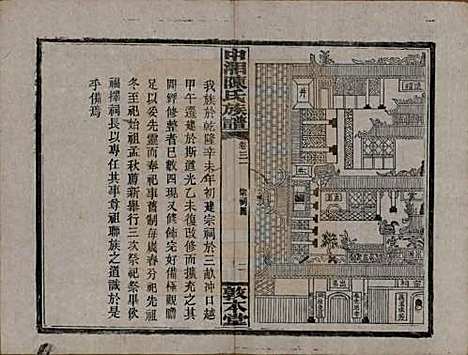 中湘陳氏族譜
卷三
祠圖
二
敦本堂
我族於乾隆辛未年初建宗祠於三畝沖口越
甲午遷建於斯道光乙未復而擴充之其
間經修整者已數四現又修飾完好備極觀瞻
足以妥先靈奉祀事舊制每歲春分祀先祖
冬至祀始祖孟秋薦新舉行三次祭祀畢飲
福擇祠長以專任其事尊祖聯族之道識於是
乎備焉
井